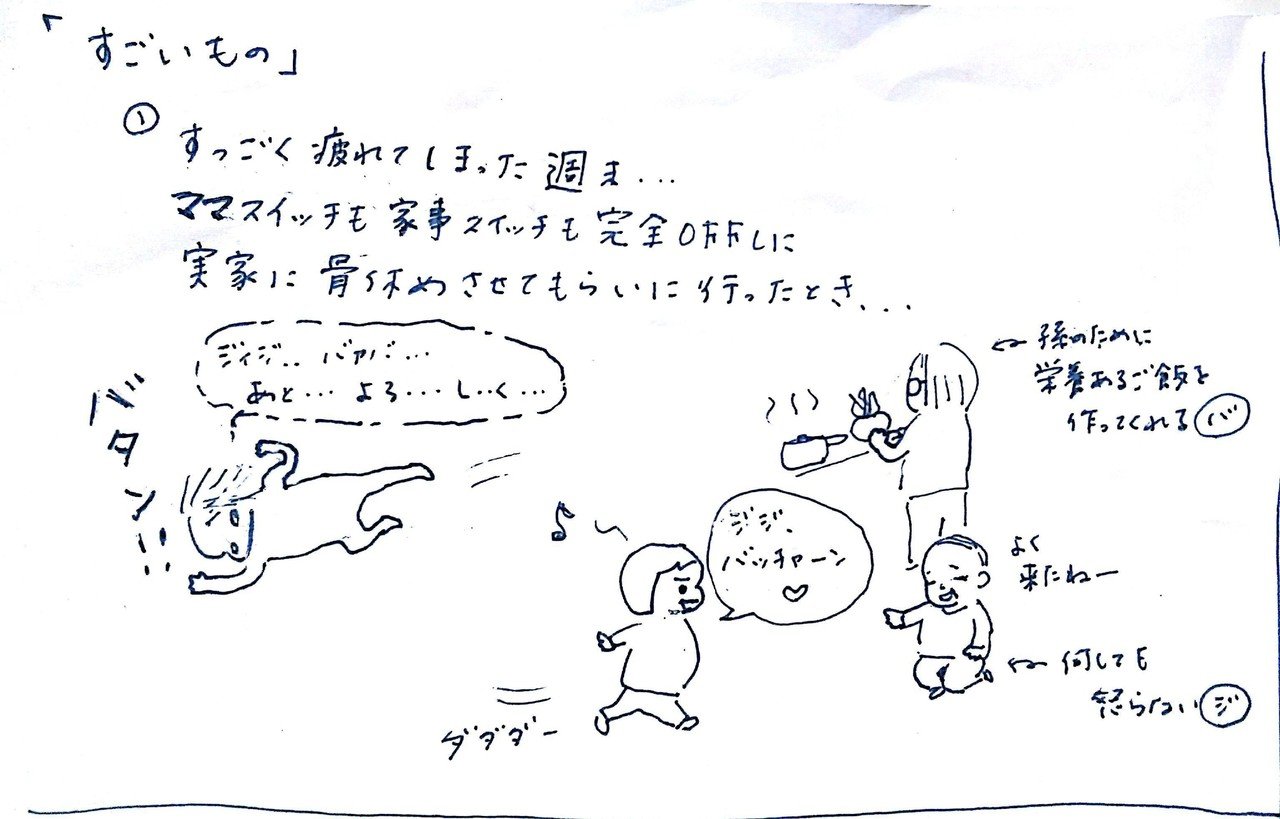 「すごいもの」
①
すっごく疲れてしまった週ま...
ママスイッチも家事スイッチも完全OFFしに
実家に骨休めさせてもらいに行ったとき...
ジィジ.. バァバ...
あと... よろ... し..く...
バタン!!
←孫のために
栄養あるご飯を
作ってくれるバ
♪
ジジ、
バッチャーン
♡
よく
来たねー
←何しても
怒らないジ
ダダダー